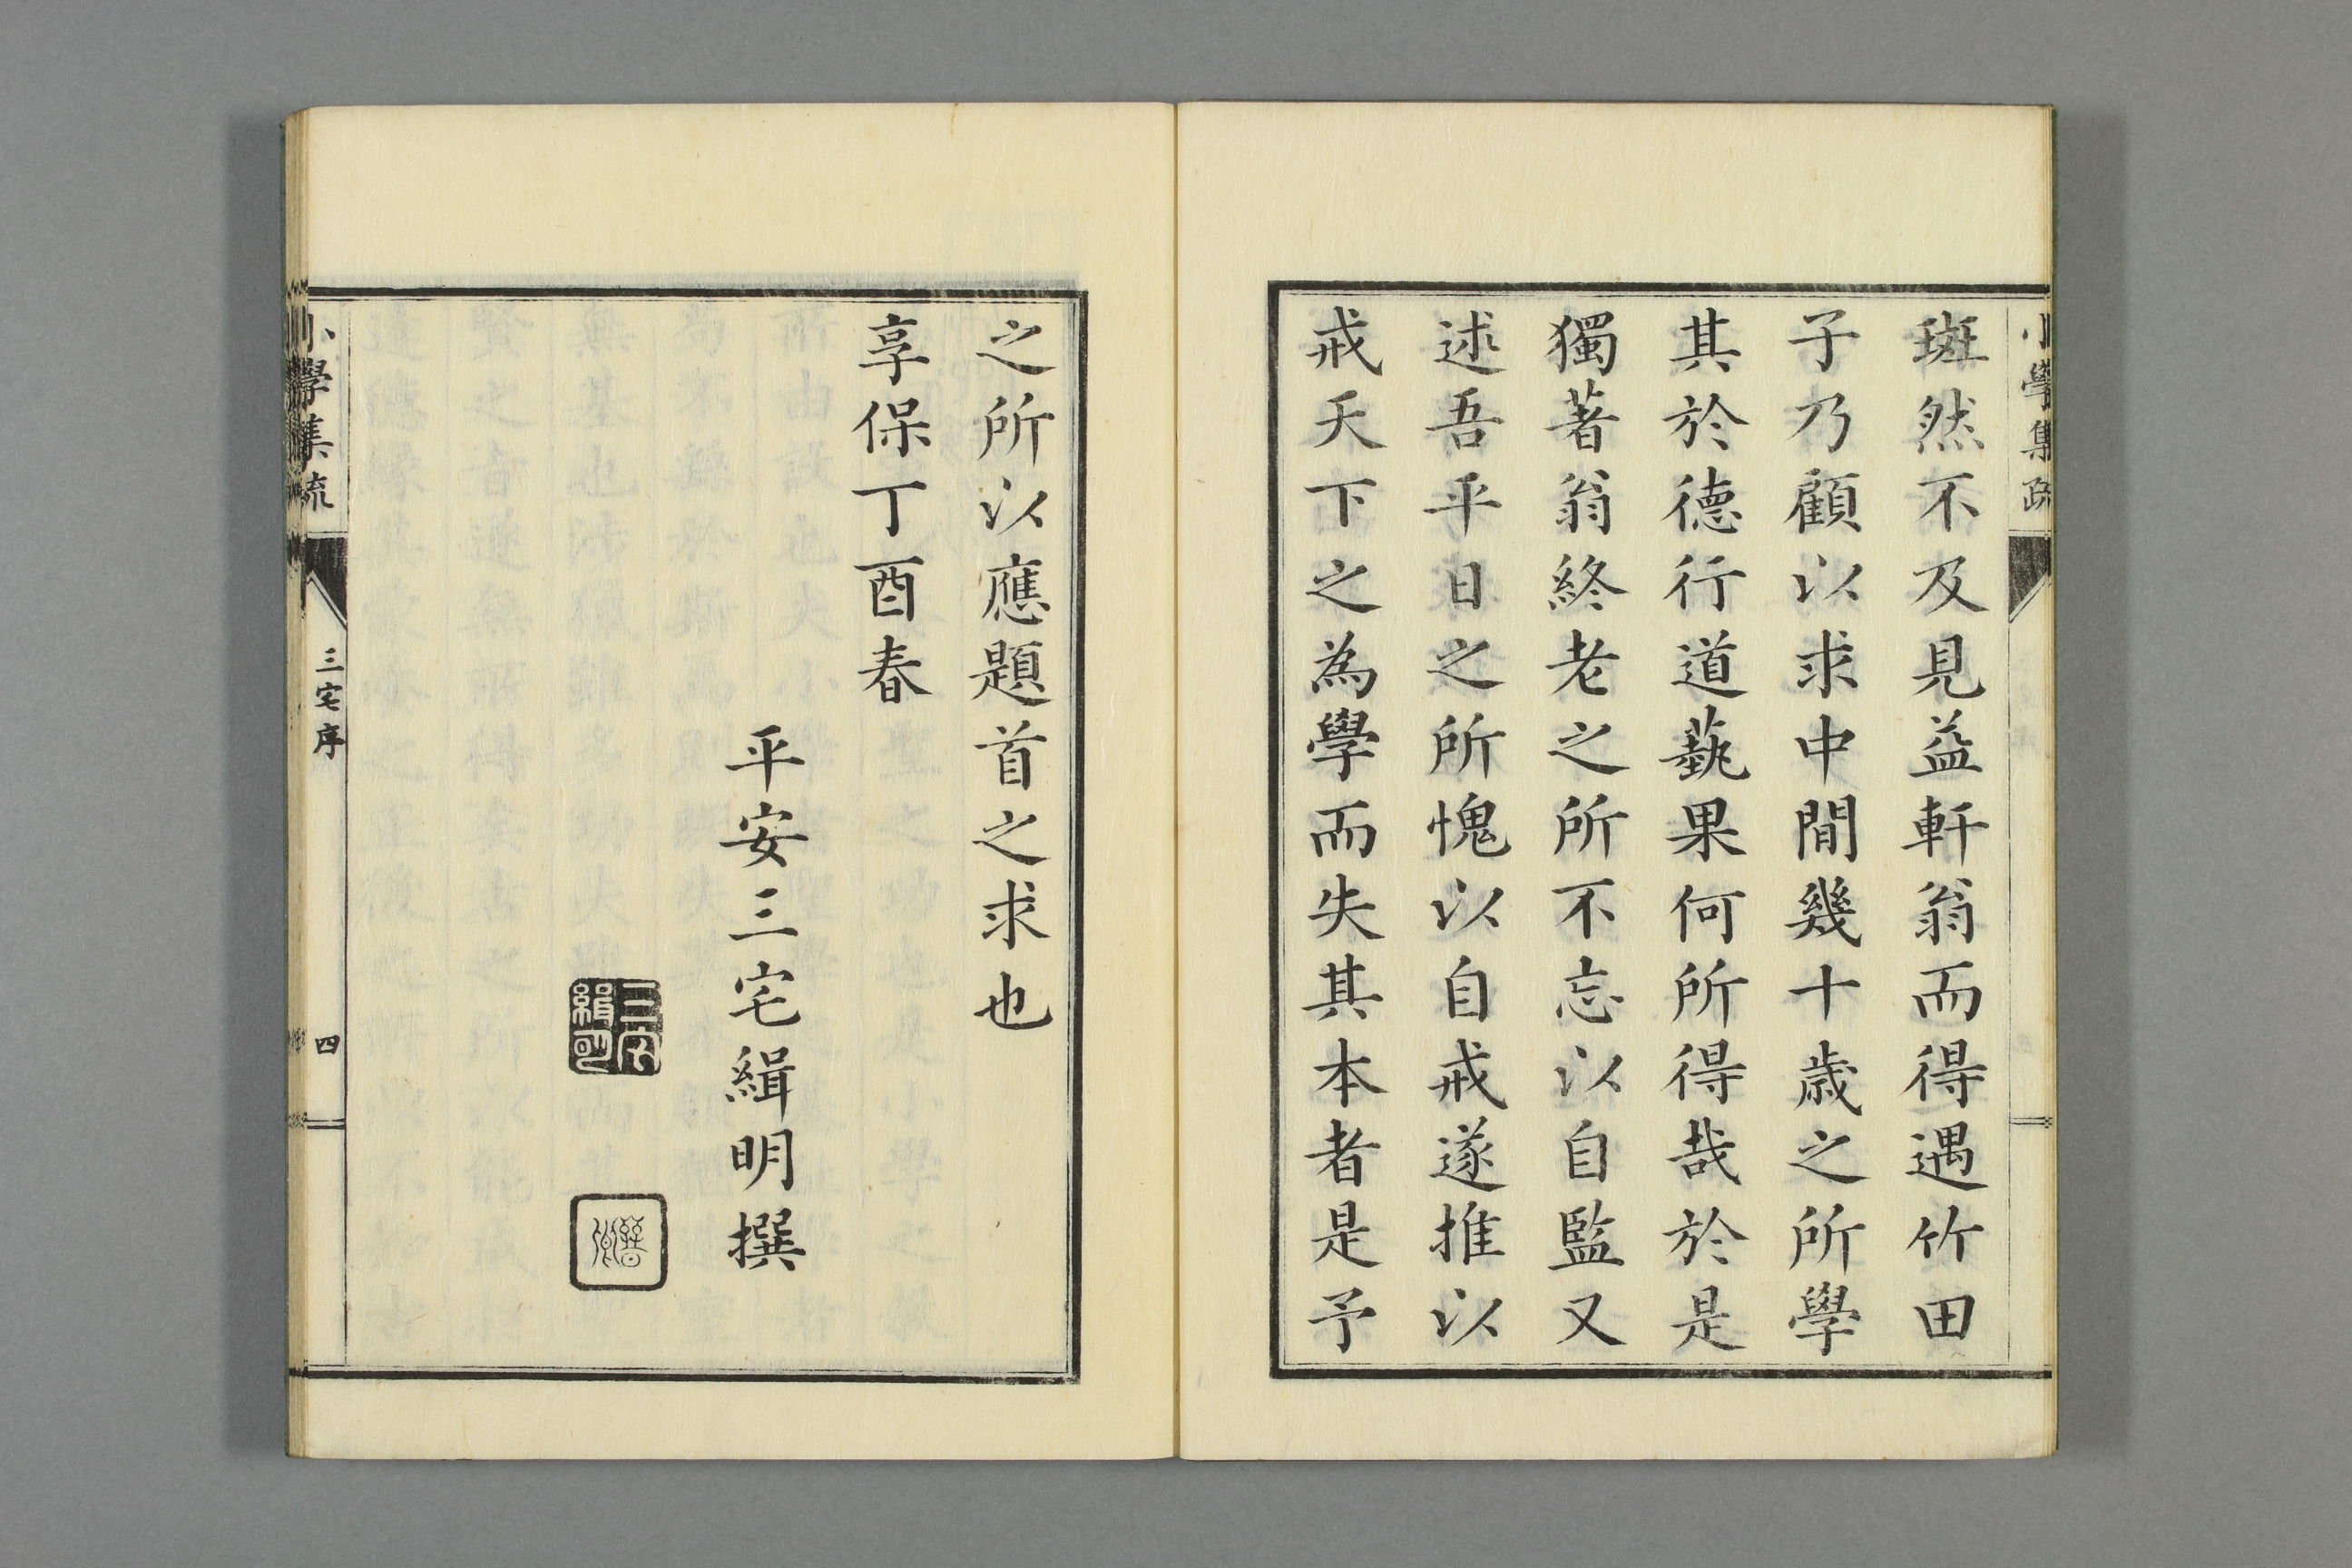 小學集疏
斑然不及見益軒翁而得遇竹田
子乃顧以求中閒幾十歳之所學
其於德行道藝果何所得哉於是
獨著翁終老之所不忘以自監又
述吾平日之所愧以自戒遂推以
戒天下之為學而失其本者是予
之所以應題首之求也
享保丁酉春
平安三宅緝明撰
三宅緝明
小學集疏
三宅序
四